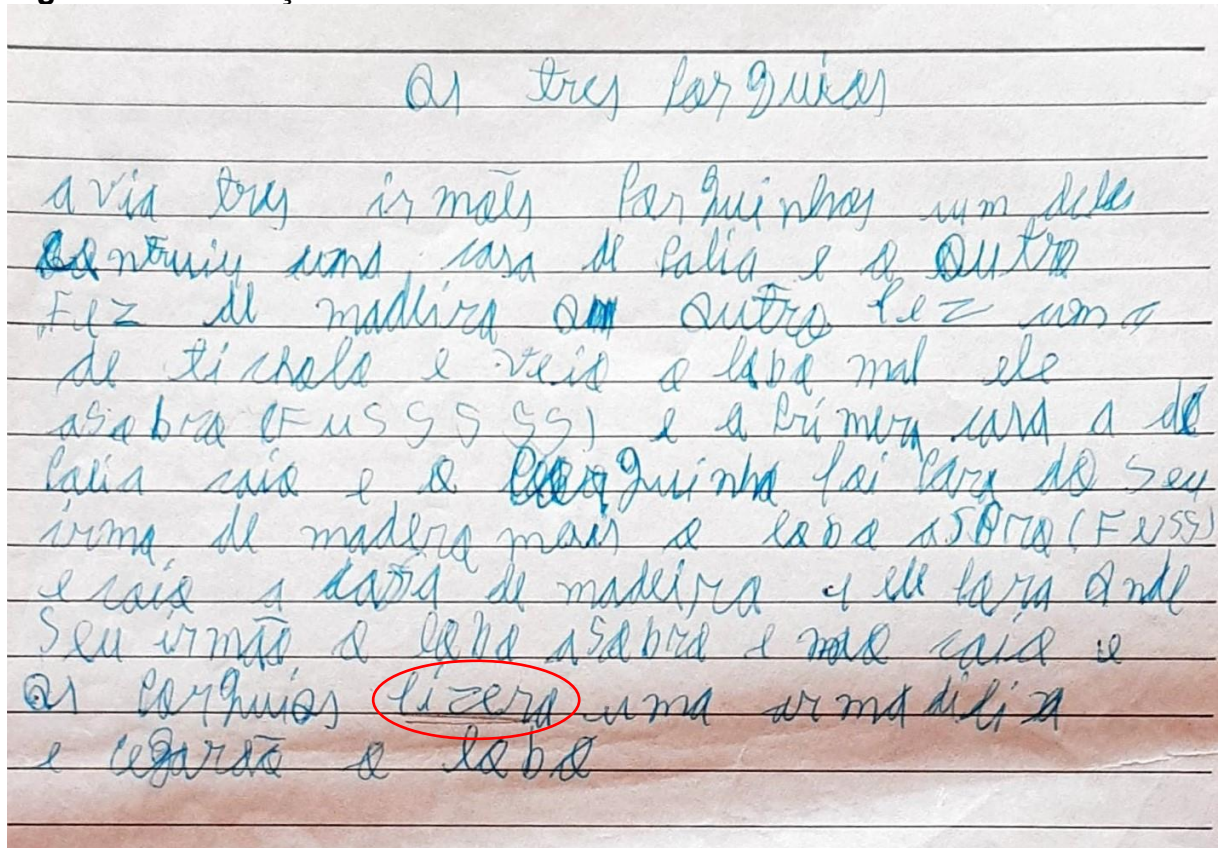 Os tres Porquios
avia tres irmães Porquinhos um deles
contruiu uma casa de Palia e o outro
Fez de madeira o outro fez uma
de tichola e veio o lobo mal ele
asobra (FUSSSSS) e a Primera casa a de
Palia caio e o Porquinho foi Para do seu
irma de madera mais o lobo asobra (FUSS)
e caio a casa de madeira e ele Para onde
Seu irmão o lobo asobra e não caio e
os Porquios fizera uma armadilia
e cegarão o lobo